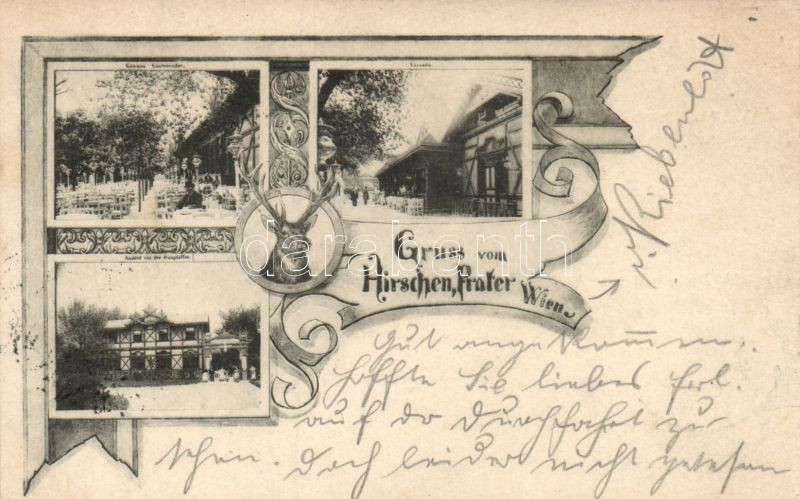 Grosser Gastgarten.
Veranda.
Ansicht von der Hauptallee.
Gruss vom
Hirschen, Prater
Wien.
darabanth
Gut angekommen.
Hoffte Sie liebes Frl.
auf der Durchfahrt zu
sehen. Doch leider nicht gewesen